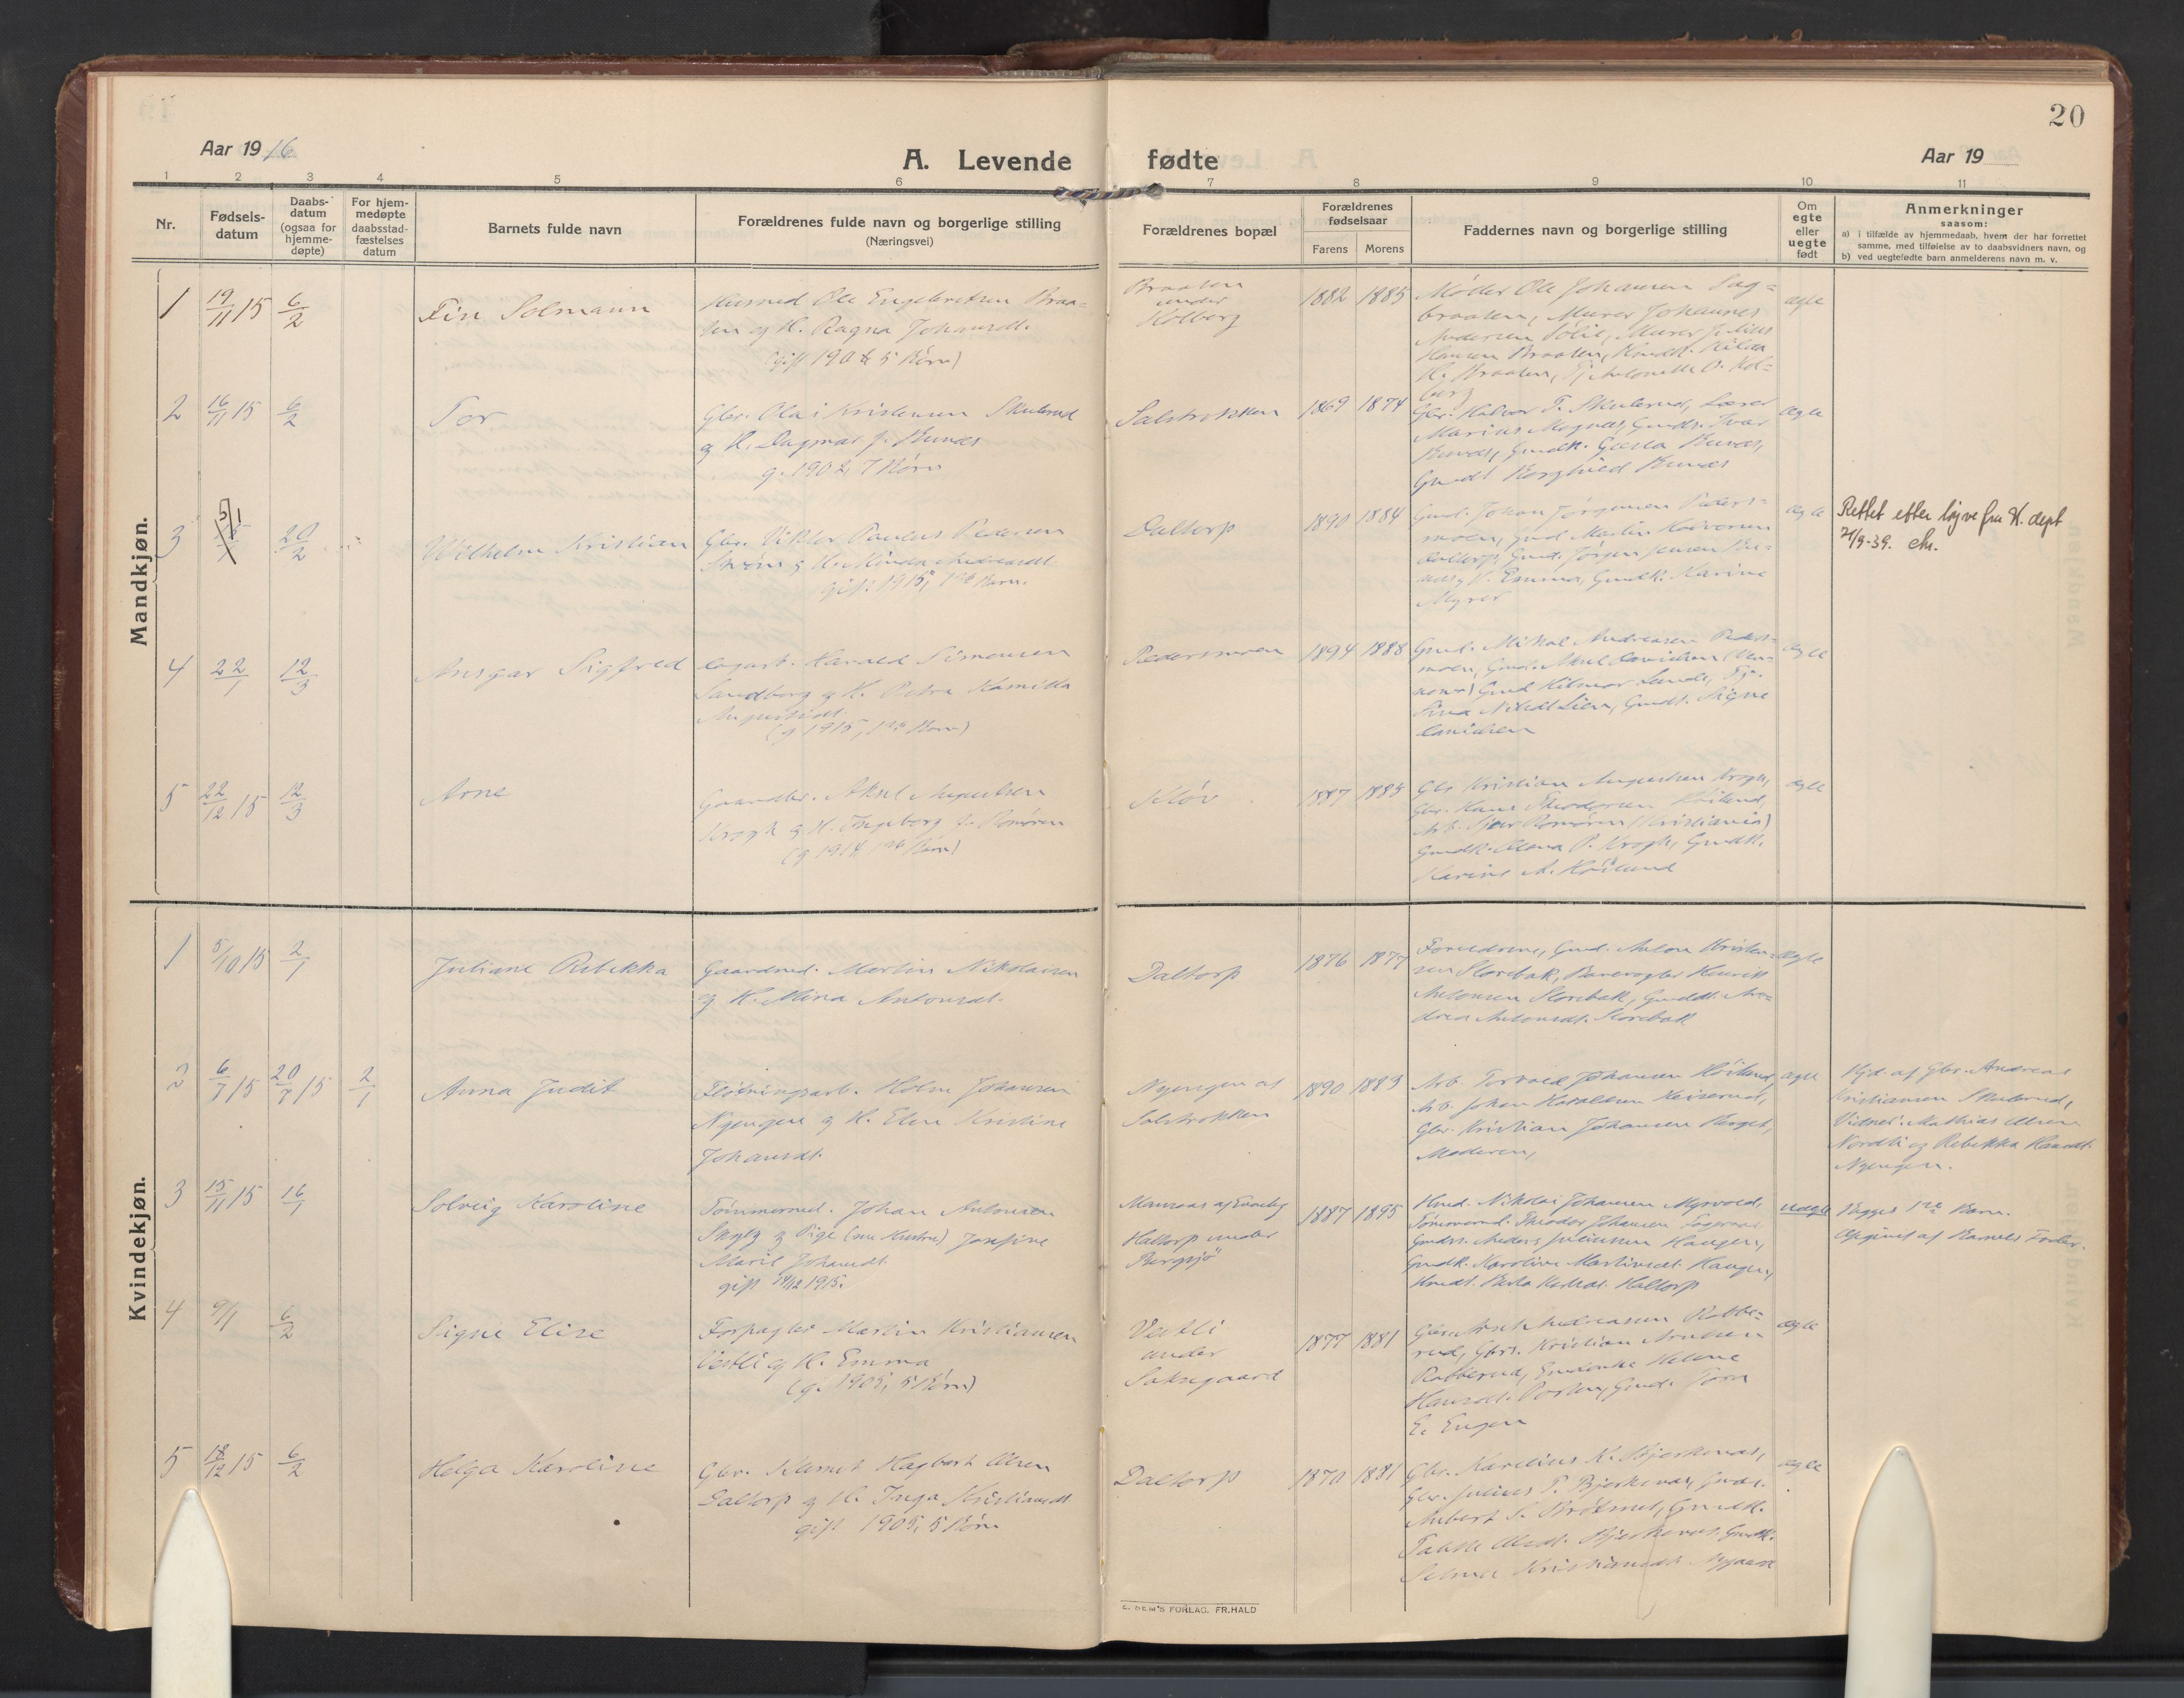 20
Aar 19 16
A. Levende fødte
Aar 19
1 2 3 4 5 6 7 8 9 10 11
Nr.
Fødsels-
datum
Daabs-
datum
(ogsaa for
hjemme-
døpte)
For hjem-
medøpte
daabsstad-
fæstelses
datum
Barnets fulde navn
Forældrenes fulde navn og borgerlige stilling
(Næringsvei)
Forældrenes bopæl
Forældrenes
fødselsaar
Farens Morens
Faddernes navn og borgerlige stilling
Om
egte
eller
uegte
født
Anmerkninger
saasom:
a) i tilfælde av hjemmedaab, hvem der har forrettet
samme, med tilføielse av to daabsvidners navn, og
b) ved uegtefødte barn anmelderens navn m. v.
Mandkjøn.
1 19/11 15 6/2
Fin Solmann
Husmd Ole Engebretsen Braa-
ten og H. Ragna Johansdt.
5 Børn)
Braaten
under
Kolborg
1882 1885
Møller Ole Johansen Sag-
braaten, Murer Johannes
Andersen Murer Julius
Hansen Braaten, Hilda
H. Braaten, Tj. Antonette O. Kol-
borg
ægte
2 16/11 15 6/2
Tor
Gbr. Olai Kristensen Skulerud
og H. Dagmar f. Bunæs
g. 1902, 7 Børn
Salstrokken
1869 1874
Gbr. Halvor T. Skulerud, Lærer
Marius Mognæs, Gmds. Ivar
Bunæs, Gmdk. Bunæs,
Gmdt Borghild Bunæs
ægte
3 5/1 20/2
Wilhelm Kristian
Gbr. Viktor Paulus Pedersen
og H. Minda Andreasdt.
gift 1915, 1ste Barn.
Daltorp
1890 1884
Gmd. Johan Jørgensen Peders-
moen, Gmd Martin Halvorsen
Daltorp, Gmd. Jørgen Jensen
H. Emma, Gmdk. Karine
Myrer
ægte
Rettet etter løyve fra K. dept
39.
4 22/1 12/3
Ansgar Sigfred
Dagarb. Harald Simensen
Sandborg og H. Petra Kamilla
Augustsdt.
(g 1915, 1ste Barn)
Pedersmoen
1894 1888
Gmd. Mikal Andreasen Peders-
moen, Gmd. Aksel Davidsen
Gmd Hilmar Lunde, Tj.
Lien, Gmdt. Signe
Davidsen
ægte
5 22/12 15 12/3
Arne
Gaardbr. Aksel Augustsen
Krogh og H. Ingeborg f. Romøren
(g 1914, 1ste Barn)
Kløv
1887 1885
Gbr Kristian Augustsen Krogh,
Gbr. Hans Theodorsen Høilund,
Arb. Romøren (Kristiania)
Gmdk. P. Krogh, Gmdk.
Karine A. Høilund
ægte
Kvindekjøn.
1 5/10 15 2/1
Juliane Rebekka
Gaardmd. Martin Nikolaisen
og H. Mina Antonsdt.
Daltorp
1876 1877
Forældrene, Gmd. Anton Kristen-
sen Slorebak, Banevogter Henrik
Antonsen Slorebak, Gmddt. An-
drea Antonsdt. Slorebak
ægte
2 6/7 15 20/7 15 2/1
Anna Judit
Fløtningsarb. Holm Johansen
Nyengen og H. Elen Kristine
Johansdt.
Nyengen af
Solstrokken
1890 1889
Arb. Torvald Johansen Høilund,
Arb. Johan Haraldsen Keiserud,
Gbr. Kristian Johansen Berget,
Moderen,
ægte
Hjd. af Gbr. Andreas
Kristiansen Skulerud,
Vidner: Mathias Olsen
Nordli og Rebekka Hansdt.
Nyengen.
3 15/11 15 16/1
Solveig Karoline
Tømmermd. Johan Antonsen
og Pige (nu Hustru) Josefine
Marie Johansdt.
gift 1915.
Haltorp under
Bergsjø
1887 1895
Hmd. Nikolai Johansen Myrvold,
Tømmermd. Theodor Johansen
Gmds. Anders Juliussen Haugen,
Gmdk. Karoline Martinsdt. Haugen,
Haltorp
uægte
Begges 1ste Barn.
Opgivet af Barnets Fader.
4 9/1 6/2
Signe Elise
Forpagter Martin Kristiansen
Vestli og H. Emma
(g. 1905, 5 Børn)
Vestli
under
Saksegaard
1877 1881
Gbr. Andreasen Robbe-
rud, Gbrs. Kristian Arnesen
Robberud, Gmdenke Helene
Hansdt. Gmd.
E. Engen
ægte
5 18/12 15 6/2
Helga Karoline
Gbr. Klemet Hagbart Olsen
Daltorp og H. Inga Kristiansdt
gift 1905, 5 Børn
Daltorp
1870 1881
Gbr. Karelius K. Bjerkenæs,
Gbr. Julius P. Bjerkenæs, Gmds.
Anbert S. Gmdk.
Olsdt. Bjerkenæs, Gmdk.
Selma Kristiansdt. Nygaard
ægte
E. SEM'S FORLAG. FR.HALD